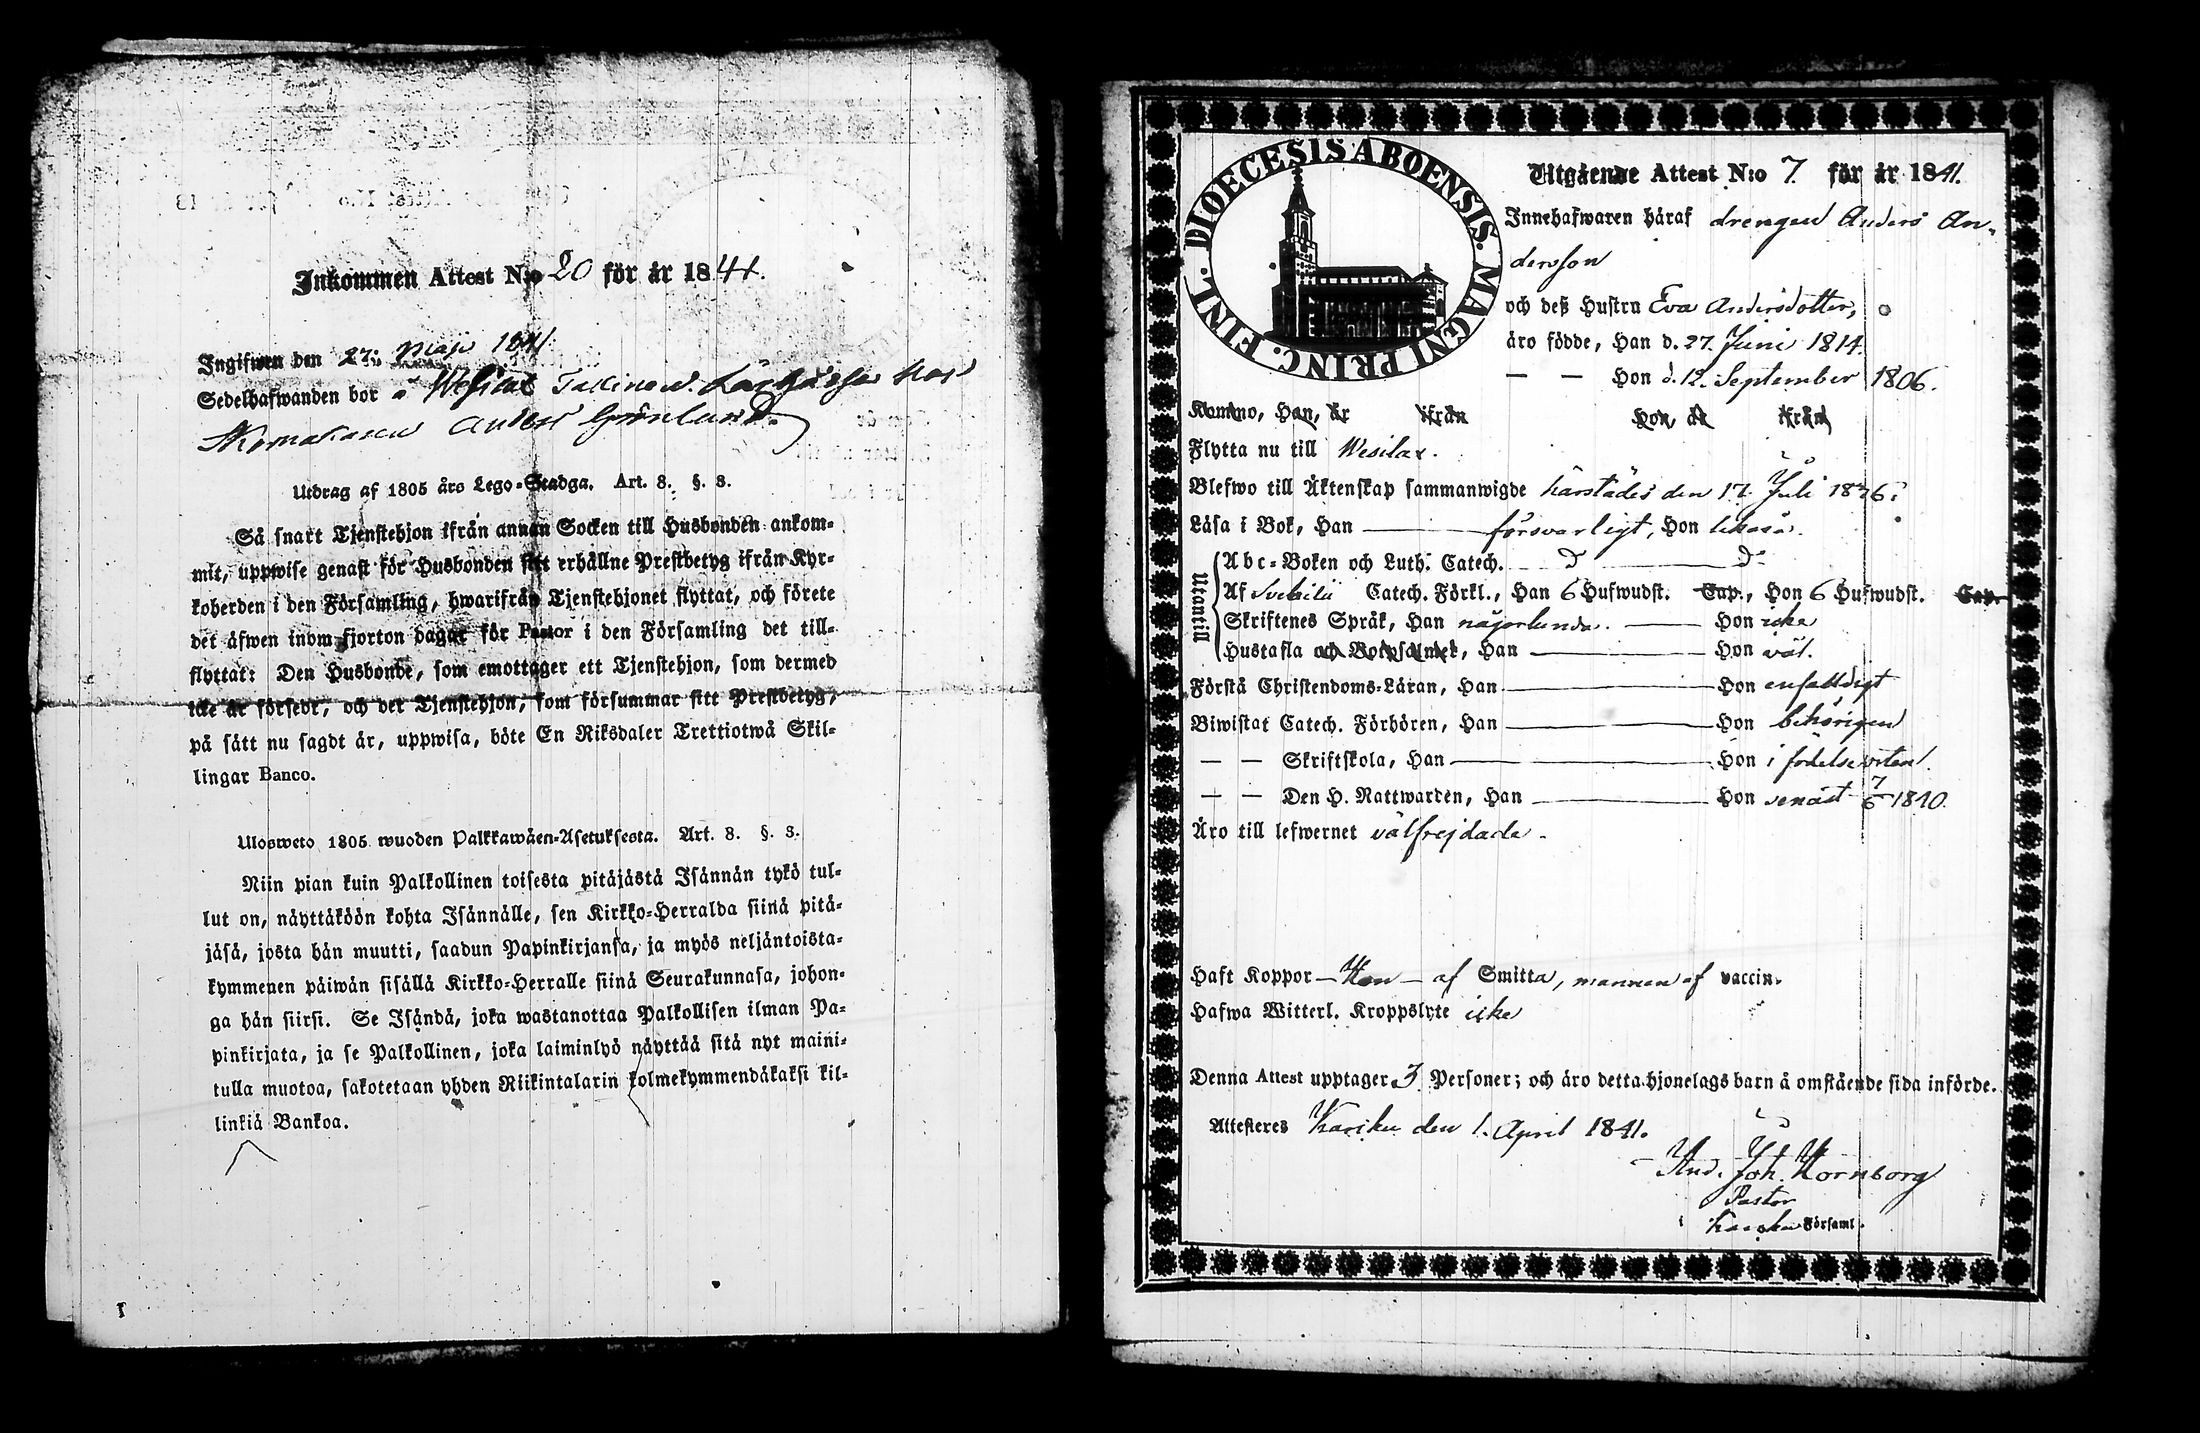 Inkommen Attest N:o 20 för år 1841.
Ingifwen den 27: Maji 1841
Sedelhafwanden bor å Wesilax hos
Skomakaren Anders Grönlund.
Utdrag af 1805 års Lego-Stadga. Art. 8. §. 3.
Så snart Tjenstehjon ifrån annan Socken till Husbonden ankom-
mit, uppwise genast för Husbonden sitt erhållne Prestbetyg ifrån Kyr-
koherden i den Församling, hwarifrån Tjenstehjonet flyttat, och förete
det äfwen inom fjorton dagar för Pastor i den Församling det till-
flyttat: Den Husbonde, som emottager ett Tjenstehjon, som dermed
icke är försedt, och det Tjenstehjon, som försummar sitt Prestbetyg,
på sätt nu sagdt är, uppwisa, böte En Riksdaler Trettiotwå Skil-
lingar Banco.
Ulosweto 1805 wuoden Palkkawäen-Asetuksesta. Art. 8. §. 3.
Niin pian kuin Palkollinen toisesta pitäjästä Isännän tykö tul-
lut on, näyttäköön kohta Isännälle, sen Kirkko-Herralda siinä pitä-
jäsä, josta hän muutti, saadun Papinkirjansa, ja myös neljäntoista-
kymmenen päiwän sisällä Kirkko-Herralle siinä Seurakunnasa, johon-
ga hän siirsi. Se Isändä, joka wastanottaa Palkollisen ilman Pa-
pinkirjata, ja se Palkollinen, joka laiminlyö näyttää sitä nyt maini-
tulla muotoa, sakotetaan yhden Riikintalarin kolmekymmendäkaksi kil-
linkiä Bankoa.
DIOECESIS ABOENSIS. MAGNI PRINC. FINL.
Utgående Attest N:o 7. för år 1841.
Innehafwaren häraf drengen Anders An-
dersson
och deß Hustru Eva Andersdotter,
äro födde, Han d. 27. Juni 1814.
— — Hon d. 12. September 1806.
Komino, Han, år ifrån Hon, år ifrån
Flytta nu till Wesilax.
Blefwo till Äktenskap sammanwigde härstädes den 17. Juli 1836:
Läsa i Bok, Han — försvarligt, Hon likaså.
Utantill
Abc-Boken och Luth. Catech. D:o — D:o
Af Svebilii Catech. Förkl., Han 6 Hufwudst. Cap., Hon 6 Hufwudst. Cap.
Skriftenes Språk, Han någorlunda. — Hon icke
Hustafla och Botpsalmer, Han — Hon väl.
Förstå Christendoms-Läran, Han — Hon enfaldigt
Biwistat Catech. Förhören, Han — Hon behörigen
— — Skriftskola, Han — Hon i födelseorten.
— — Den H. Nattwarden, Han — Hon senast 7/6 1840.
Äro till lefwernet välfrejdade.
Haft Koppor — Hon — af Smitta, mannen af vaccin.
Hafwa Witterl. Kroppslyte icke
Denna Attest upptager 3 Personer; och äro detta hjonelags barn å omstående sida införde.
Attesteres Kariku den 1. April 1841.
And. Joh. Hornborg
Pastor
i Karcku Församl.